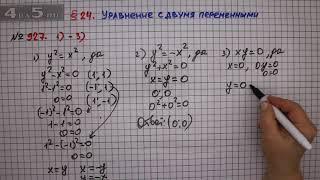 § 24. Уравнение с двумя переменными
№ 927. 1) - 3)
1) y² = x², да
y² - x² = 0 (1; 1)
1² - 1² = 0
0 = 0
(-1)² - 1² = 0
1 - 1 = 0
0 = 0
1² - (-1)² = 0
0 = 0
x = y x = -y
y = -x
2) y² = -x², да
y² + x² = 0
x = y = 0
0; 0
0² + 0² = 0
Ответ: (0; 0)
3) xy = 0, да
x = 0, 0·y = 0
0 = 0
y = 0